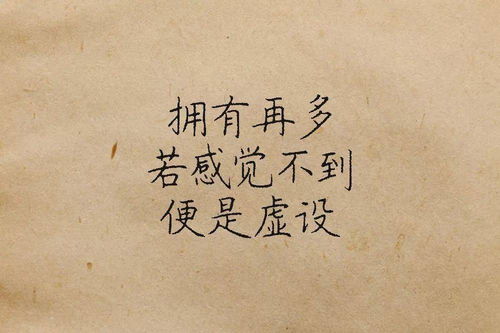 拥有再多
若感觉不到
便是虚设